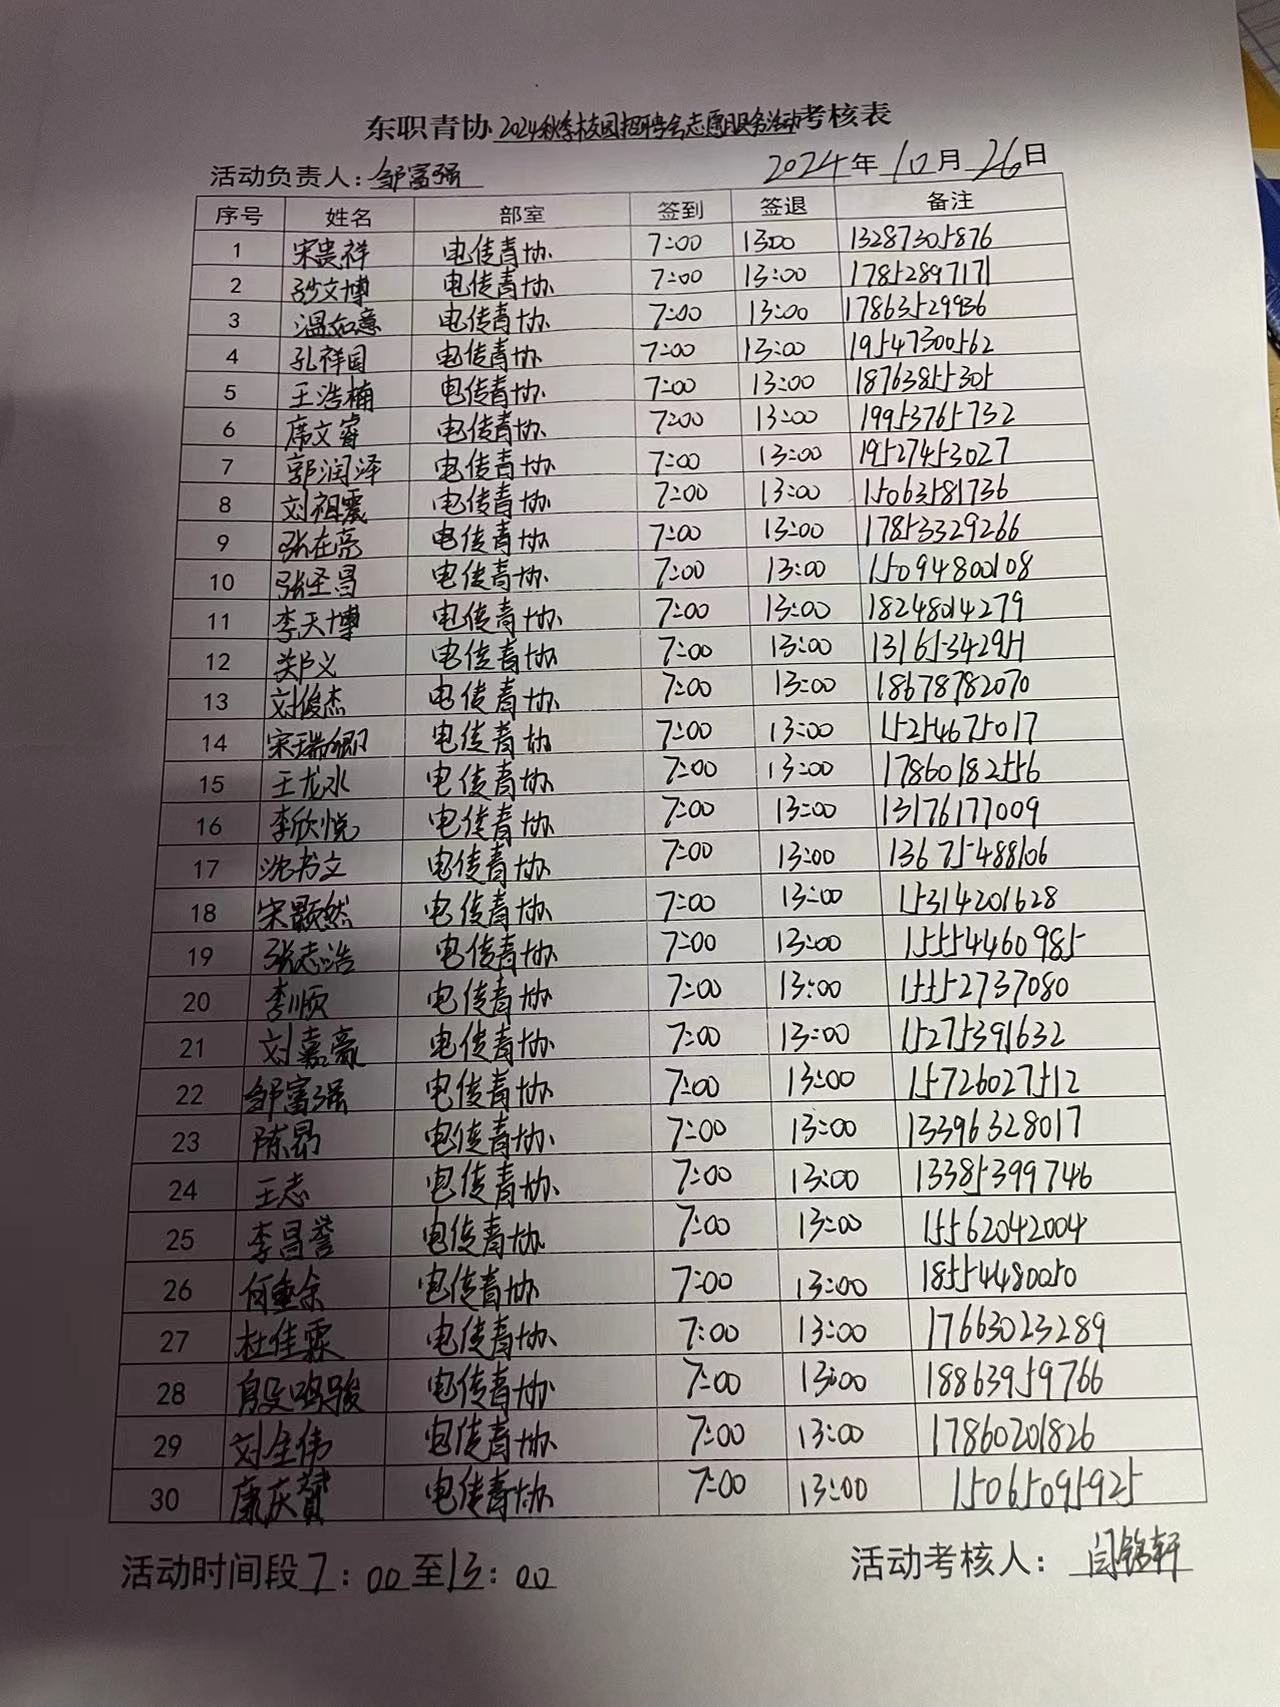 东职青协2024秋季校园招聘会志愿服务活动考核表
活动负责人：邹富强 2024年10月26日
序号 姓名 部室 签到 签退 备注
1 宋贵祥 电传青协 7:00 13:00 13287305876
2 孙文博 电传青协 7:00 13:00 17852897171
3 温如意 电传青协 7:00 13:00 17863529936
4 孔祥国 电传青协 7:00 13:00 19547300562
5 王浩楠 电传青协 7:00 13:00 18763855305
6 席文睿 电传青协 7:00 13:00 19953765732
7 郭润泽 电传青协 7:00 13:00 19527453027
8 刘祖震 电传青协 7:00 13:00 15063581736
9 张在亮 电传青协 7:00 13:00 17853329266
10 张圣昌 电传青协 7:00 13:00 15094800108
11 李天博 电传青协 7:00 13:00 18248014279
12 郑义 电传青协 7:00 13:00
13 刘俊杰 电传青协 7:00 13:00 18678782070
14 宋瑞卿 电传青协 7:00 13:00 15254675017
15 王龙水 电传青协 7:00 13:00 17860182556
16 李欣悦 电传青协 7:00 13:00 13176177009
17 沈书文 电传青协 7:00 13:00 13675488106
18 宋颢然 电传青协 7:00 13:00 15314201628
19 张志浩 电传青协 7:00 13:00 15554460985
20 李顺 电传青协 7:00 13:00 15552737080
21 刘嘉豪 电传青协 7:00 13:00 15275391632
22 邹富强 电传青协 7:00 13:00 15726027512
23 陈昂 电传青协 7:00 13:00 13396328017
24 王志 电传青协 7:00 13:00 13385399746
25 李昌誉 电传青协 7:00 13:00 15562042004
26 何垂余 电传青协 7:00 13:00 18554480050
27 杜佳霖 电传青协 7:00 13:00 17663023289
28 殷鸣骏 电传青协 7:00 13:00 18863959766
29 刘全伟 电传青协 7:00 13:00 17860201826
30 康庆赟 电传青协 7:00 13:00 15065095925
活动时间段7：00至13：00 活动考核人：闫锦轩